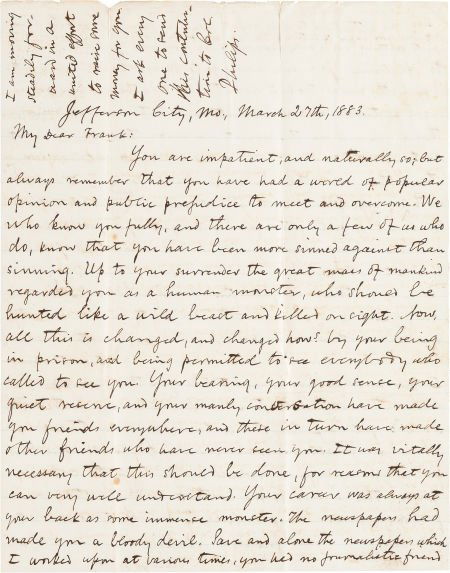 I am moving
steadily for-
ward in a
united effort
to raise some
money for you
I ask every
one to send
this contribu-
tion to Col.
Philips.
Jefferson City, Mo., March 27th, 1883.
My Dear Frank:
You are impatient, and naturally so; but
always remember that you have had a world of popular
opinion and public prejudice to meet and overcome. We
who know you fully, and there are only a few of us who
do, know that you have been more sinned against than
sinning. Up to your surrender the great mass of mankind
regarded you as a human monster, who should be
hunted like a wild beast and killed on sight. Now,
all this is changed, and changed how? by your being
in prison, and being permitted to see everybody who
called to see you. Your bearing, your good sense, your
quiet reserve, and your manly conversation have made
you friends everywhere, and these in turn have made
other friends who have never seen you. It was vitally
necessary that this should be done, for reasons that you
can very well understand. Your career was always at
your back as some immense monster. The newspapers had
made you a bloody devil. Save and alone the newspapers which
I worked upon at various times, you had no journalistic friend